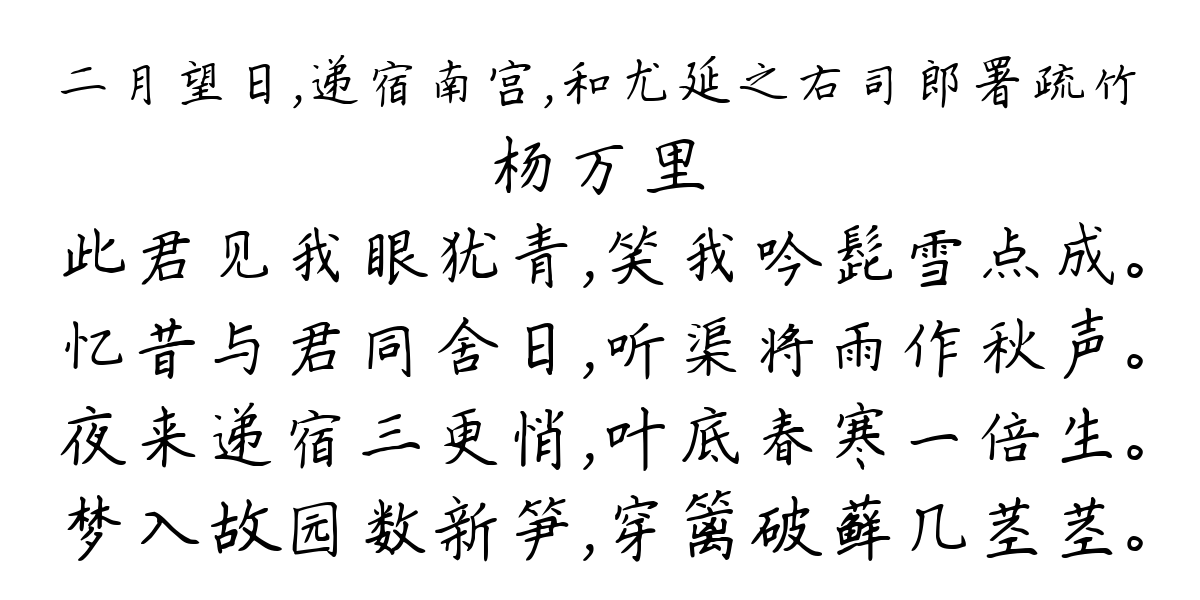 二月望日,递宿南宫,和尤延之右司郎署疏竹
杨万里
此君见我眼犹青,笑我吟髭雪点成。
忆昔与君同舍日,听渠将雨作秋声。
夜来递宿三更悄,叶底春寒一倍生。
梦入故园数新笋,穿篱破藓几茎茎。